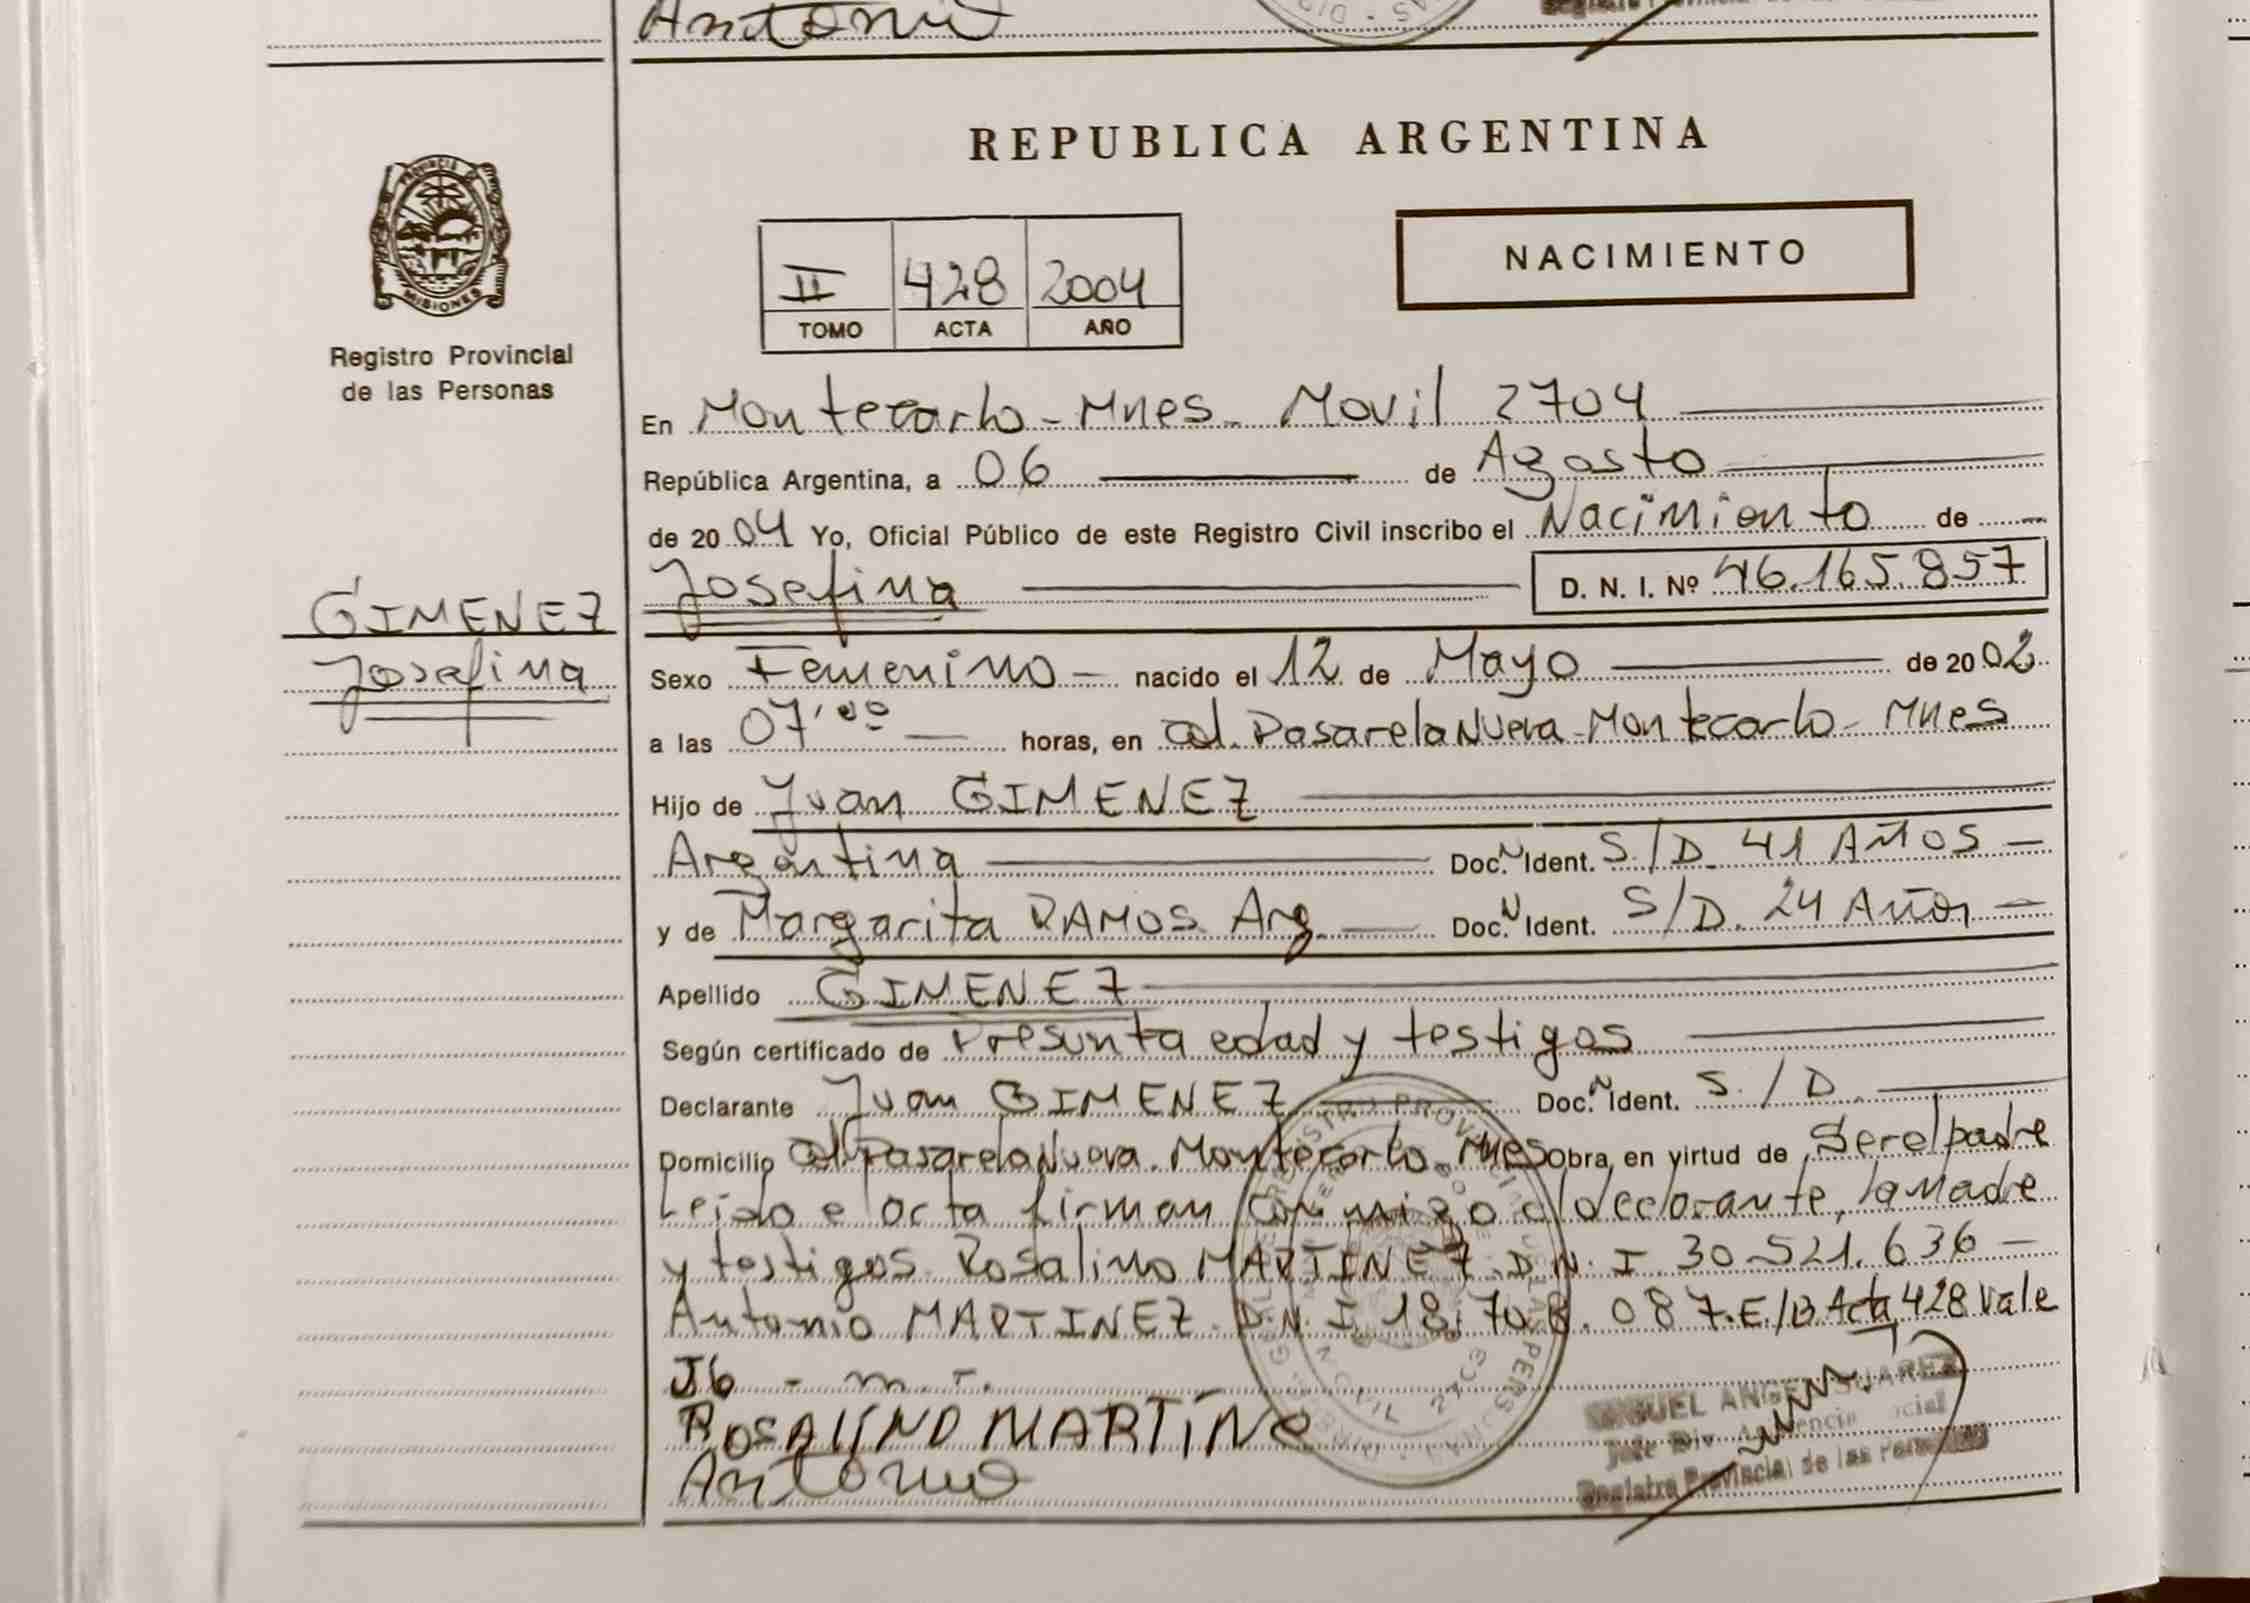 Antonio
REPUBLICA ARGENTINA
PROVINCIA DE
MISIONES
Registro Provincial
de las Personas
NACIMIENTO
II 428 2004
TOMO ACTA AÑO
En Montecarlo - Mnes - Movil 2704
República Argentina, a 06 de Agosto
de 2004 Yo, Oficial Público de este Registro Civil inscribo el Nacimiento de
GIMENEZ
Josefina
Josefina D. N. I. Nº 46.165.857
Sexo Femenino nacido el 12 de Mayo de 2002
a las 07,00 horas, en Col. Pasarela Nueva - Montecarlo - Mnes
Hijo de Juan GIMENEZ
Argentina Doc. N Ident. S./D. 41 Años
y de Margarita RAMOS Arg. Doc. N Ident. S/D. 24 Años
Apellido GIMENEZ
Según certificado de Presunta edad y testigos
Declarante Juan GIMENEZ Doc. N Ident. S./D.
Domicilio Col. Pasarela Nueva. Montecarlo. Mnes Obra, en virtud de Ser el padre
Leido e acta firman conmigo el declarante, la Madre
y testigos. Rosalino MARTINEZ. D.N.I 30.521.636
Antonio MARTINEZ. D.N.I. 18.708.087. E/B Acta 428 Vale
JG - m.r.
ROSALINO MARTINE
Antonio
MIGUEL ANGEL SUAREZ
Registro Provincial de las Personas